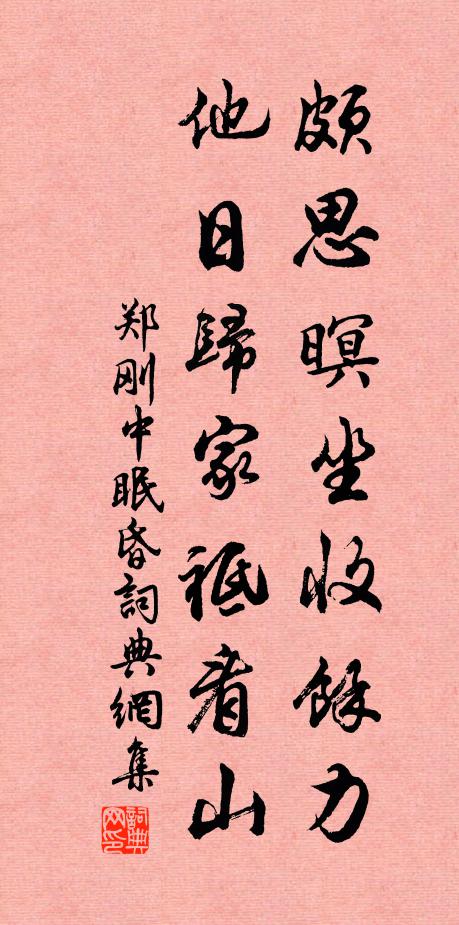 頗思暝坐收餘力
他日歸家祗看山
郑刚中眠昏詞典網集
詞典网印